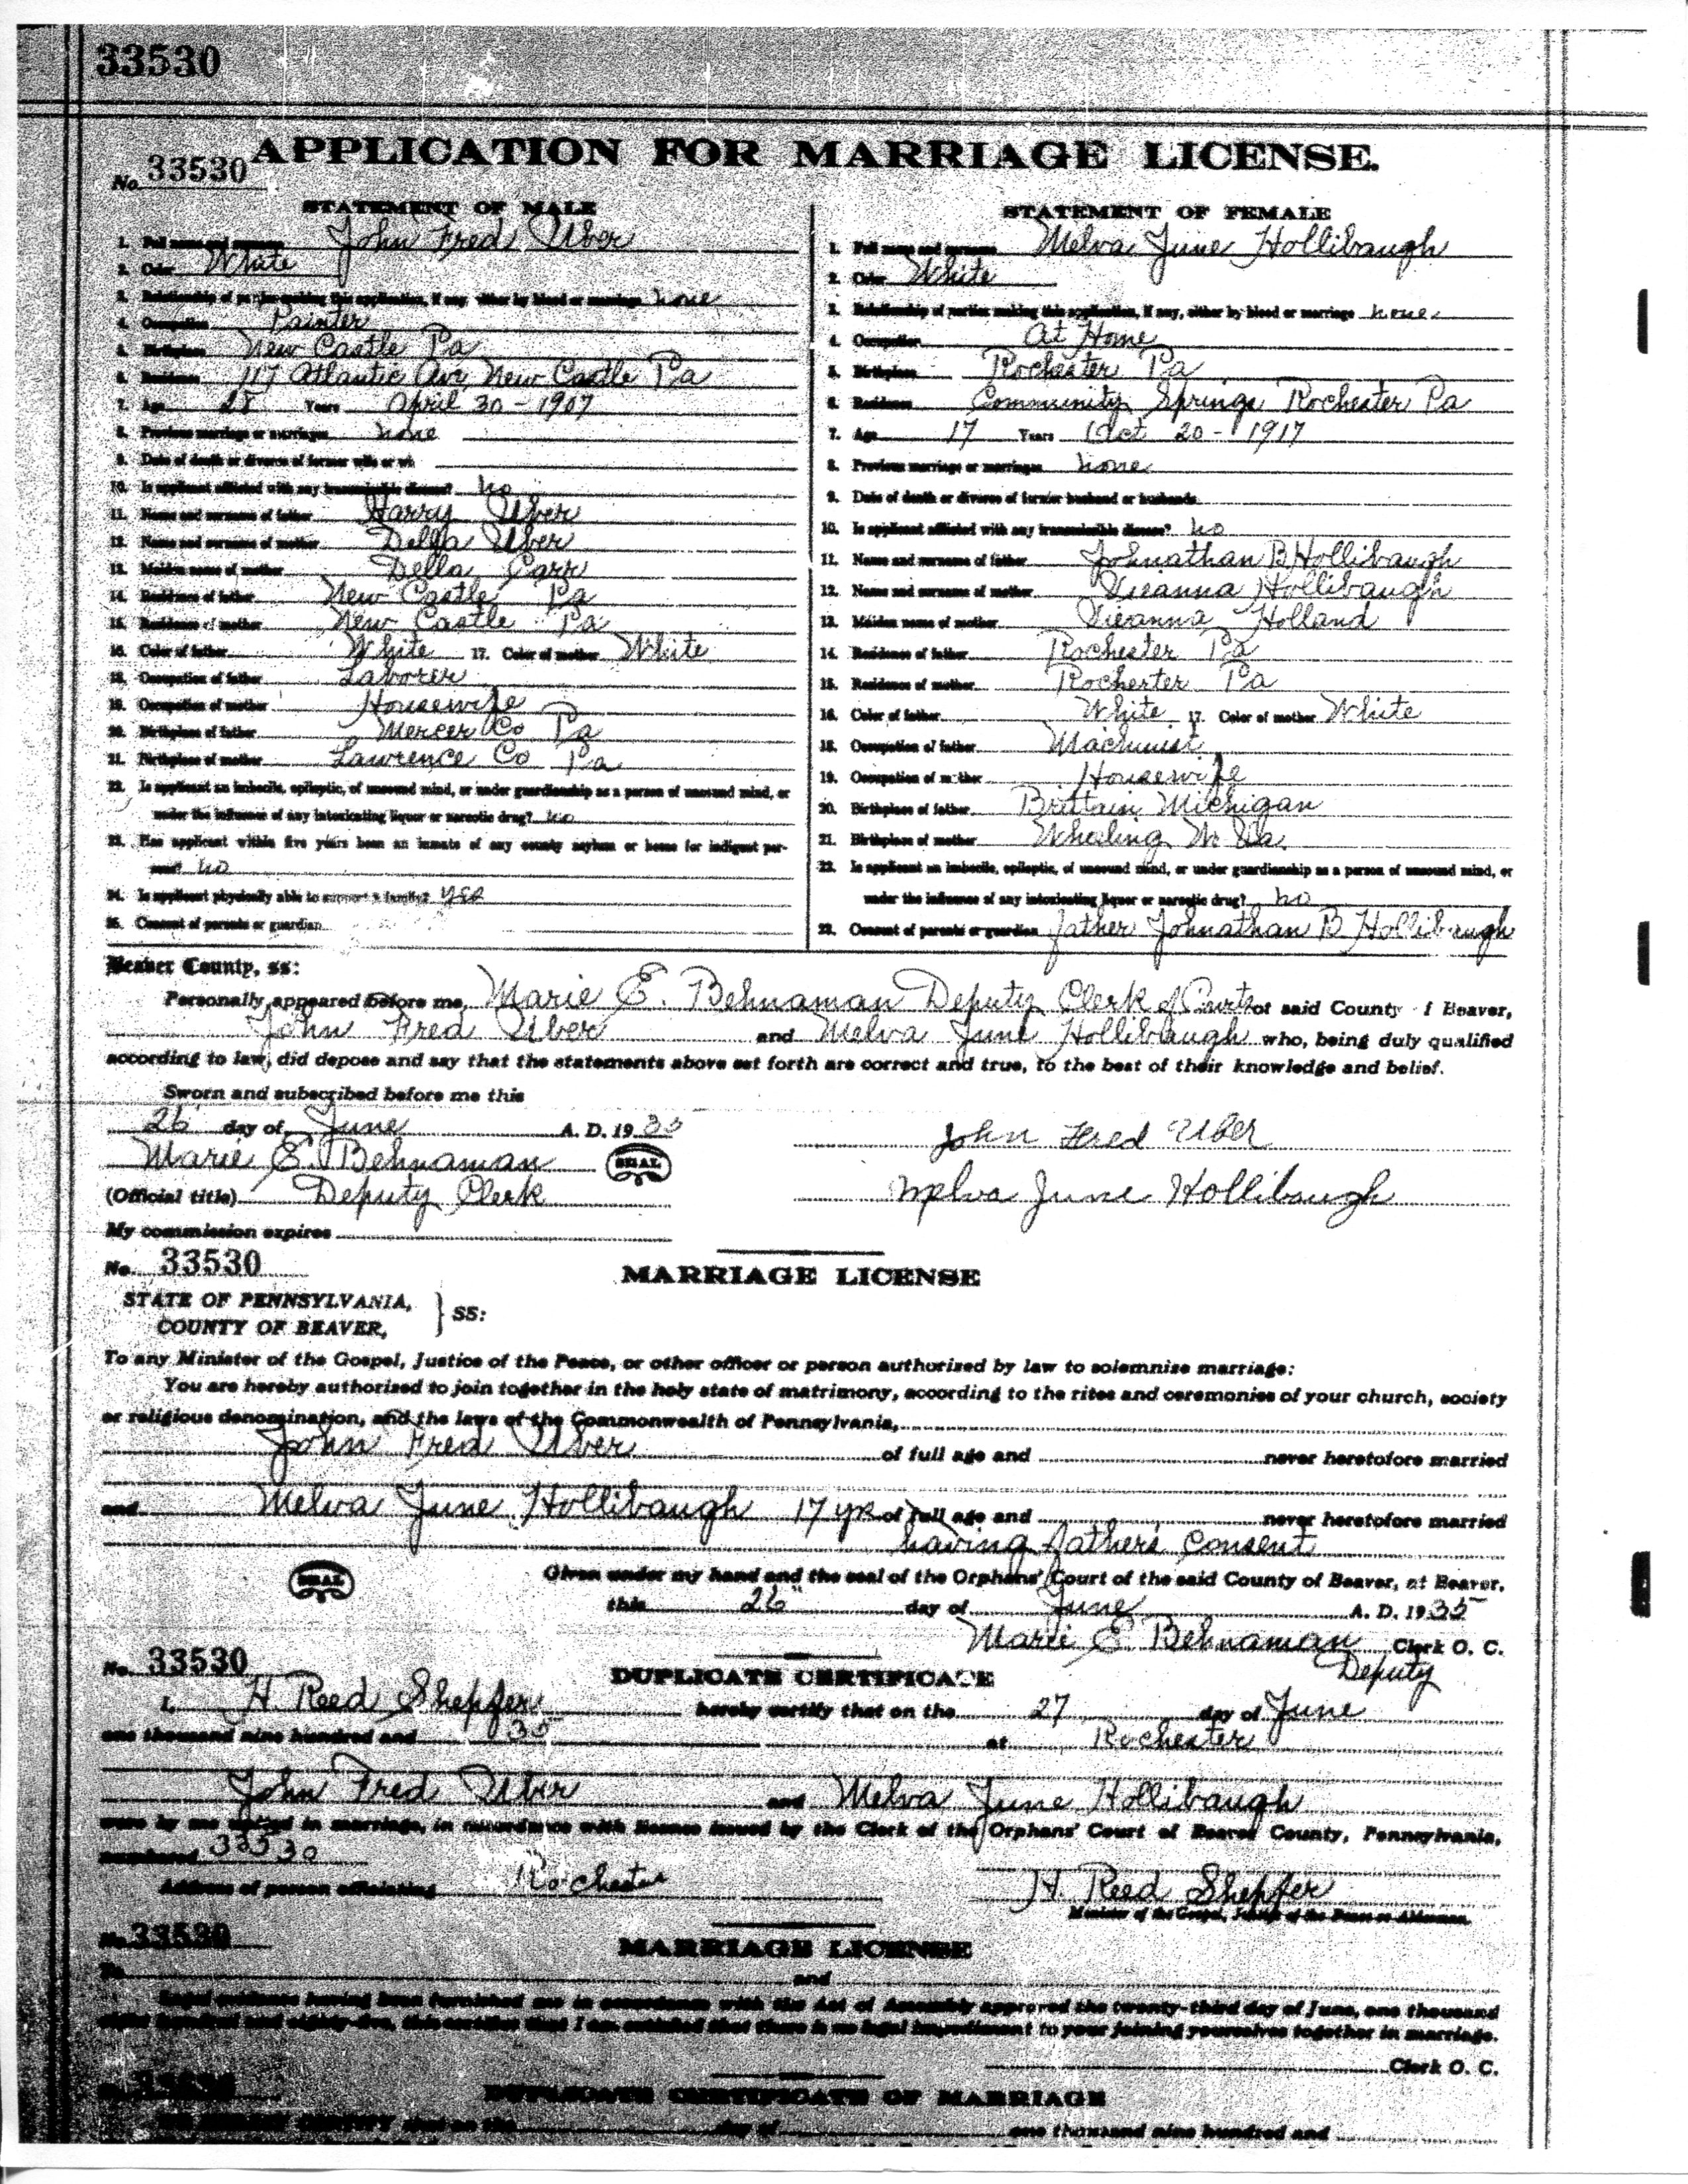 33530
APPLICATION FOR MARRIAGE LICENSE.
No. 33530
STATEMENT OF MALE
1. Full name and surname John Fred Uber
2. Color White
3. Relationship of parties making this application, if any, either by blood or marriage none
4. Occupation Painter
5. Birthplace New Castle Pa
6. Residence 117 Atlantic Ave New Castle Pa
7. Age 28 Years April 30 - 1907
8. Previous marriage or marriages none
9. Date of death or divorce of former wife or wi
10. Is applicant afflicted with any transmissible disease? no
11. Name and surname of father Harry Uber
12. Name and surname of mother Della Uber
13. Maiden name of mother Della Carr
14. Residence of father New Castle Pa
15. Residence of mother New Castle Pa
16. Color of father White 17. Color of mother White
18. Occupation of father Laborer
19. Occupation of mother Housewife
20. Birthplace of father Mercer Co Pa
21. Birthplace of mother Lawrence Co Pa
22. Is applicant an imbecile, epileptic, of unsound mind, or under guardianship as a person of unsound mind, or
under the influence of any intoxicating liquor or narcotic drug? no
23. Has applicant within five years been an inmate of any county asylum or home for indigent per-
sons? no
24. Is applicant physically able to support a family? yes
25. Consent of parents or guardian
STATEMENT OF FEMALE
1. Full name and surname Melva June Hollibaugh
2. Color White
3. Relationship of parties making this application, if any, either by blood or marriage none
4. Occupation At Home
5. Birthplace Rochester Pa
6. Residence Community Springs Rochester Pa
7. Age 17 Years Oct 20 - 1917
8. Previous marriage or marriages none
9. Date of death or divorce of former husband or husbands
10. Is applicant afflicted with any transmissible disease? no
11. Name and surname of father Johnathan B Hollibaugh
12. Name and surname of mother Dieanna Hollibaugh
13. Maiden name of mother Dieanna Holland
14. Residence of father Rochester Pa
15. Residence of mother Rochester Pa
16. Color of father White 17. Color of mother White
18. Occupation of father Machinist
19. Occupation of mother Housewife
20. Birthplace of father Brittain Michigan
21. Birthplace of mother Wheeling W. Va.
22. Is applicant an imbecile, epileptic, of unsound mind, or under guardianship as a person of unsound mind, or
under the influence of any intoxicating liquor or narcotic drug? no
23. Consent of parents or guardian father Johnathan B Hollibaugh
Beaver County, ss:
Personally appeared before me, Marie E. Behnaman Deputy Clerk of Courts of said County f Beaver,
John Fred Uber and Melva June Hollibaugh who, being duly qualified
according to law, did depose and say that the statements above set forth are correct and true, to the best of their knowledge and belief.
Sworn and subscribed before me this
26 day of June A. D. 1935
Marie E. Behnaman SEAL
(Official title) Deputy Clerk
My commission expires
John Fred Uber
Melva June Hollibaugh
No. 33530
MARRIAGE LICENSE
STATE OF PENNSYLVANIA,
COUNTY OF BEAVER, } SS:
To any Minister of the Gospel, Justice of the Peace, or other officer or person authorized by law to solemnize marriage:
You are hereby authorized to join together in the holy state of matrimony, according to the rites and ceremonies of your church, society
or religious denomination, and the laws of the Commonwealth of Pennsylvania,
John Fred Uber of full age and never heretofore married
and Melva June Hollibaugh 17 yrs of full age and never heretofore married
having father's consent
SEAL
Given under my hand and the seal of the Orphans' Court of the said County of Beaver, at Beaver,
this 26" day of June A. D. 1935
Marie E. Behnaman Clerk O. C.
Deputy
No. 33530
DUPLICATE CERTIFICATE
I, H. Reed Shepfer hereby certify that on the 27 day of June
one thousand nine hundred and 35 at Rochester
John Fred Uber and Melva June Hollibaugh
were by me united in marriage, in accordance with license issued by the Clerk of the Orphans' Court of Beaver County, Pennsylvania,
numbered 33530
Address of person officiating Rochester
H. Reed Shepfer
Minister of the Gospel, Justice of the Peace or Alderman.
No. 33530
MARRIAGE LICENSE
To and
Legal evidence having been furnished me in accordance with the Act of Assembly approved the twenty-third day of June, one thousand
eight hundred and eighty-five, this certifies that I am satisfied that there is no legal impediment to your joining yourselves together in marriage.
Clerk O. C.
33530
DUPLICATE CERTIFICATE OF MARRIAGE
day of one thousand nine hundred and